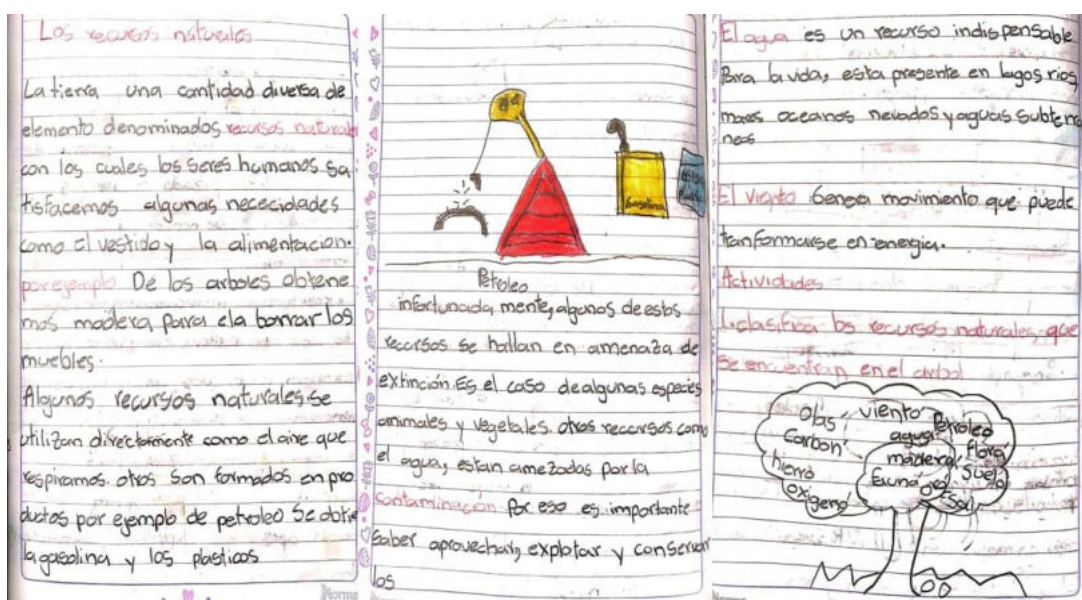 Los recursos naturales
La tierra una cantidad diversa de
elemento denominados recursos natural
con los cuales los seres humanos sa
tisfacemos algunas nececidades
como el vestido y la alimentacion.
por ejemplo De los arboles obtene
mos madera para ela borrar los
muebles.
Algunos recursos naturales se
utilizan directamente como el aire que
respiramos. otros son formados en pro
ductos por ejemplo de petroleo se obtie
la gasolina y los plasticos
Norma
Gasolina
Petroleo
infortunada, mente, algunos de estos
recursos se hallan en amenaza de
extinción. Es el caso de algunas especies
animales y vegetales. otros recursos como
el agua, estan amezadas por la
contaminación Por eso es importante
saber aprovechar, explotar y conservar
los
El agua es un recurso indispensable
Para la vida, esta presente en lagos, rios,
mares oceanos nevados y aguas subterra
neas
El viento Genera movimiento que puede
tranformarse en energia.
Actividades
1. clasifica los recursos naturales, que
se encuentran en el arbol
Olas, viento Petróleo
Carbon agua Flora
hierro madera Suelo
oxigeno Fauna oro
Fosil